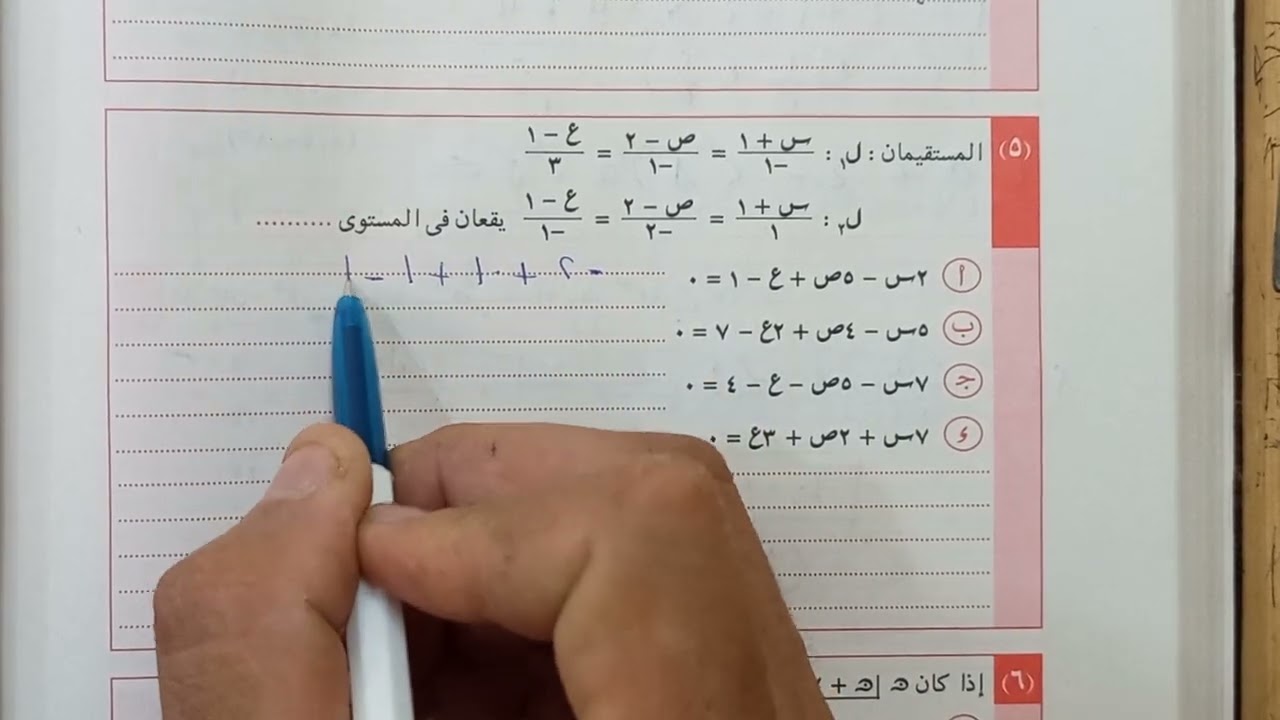 (٥) المستقيمان : ل₁ : (س + ١)/(-١) = (ص - ٢)/(-١) = (ع - ١)/٣
ل₂ : (س + ١)/١ = (ص - ٢)/(-٢) = (ع - ١)/(-١) يقعان فى المستوى ..........
أ ٢س - ٥ص + ع - ١ = ٠
- ٢ + ١ + ١ - ١
ب ٥س - ٤ص + ٢ع - ٧ = ٠
ج ٧س - ٥ص - ع - ٤ = ٠
ء ٧س + ٢ص + ٣ع = ٠
(٦) إذا كان